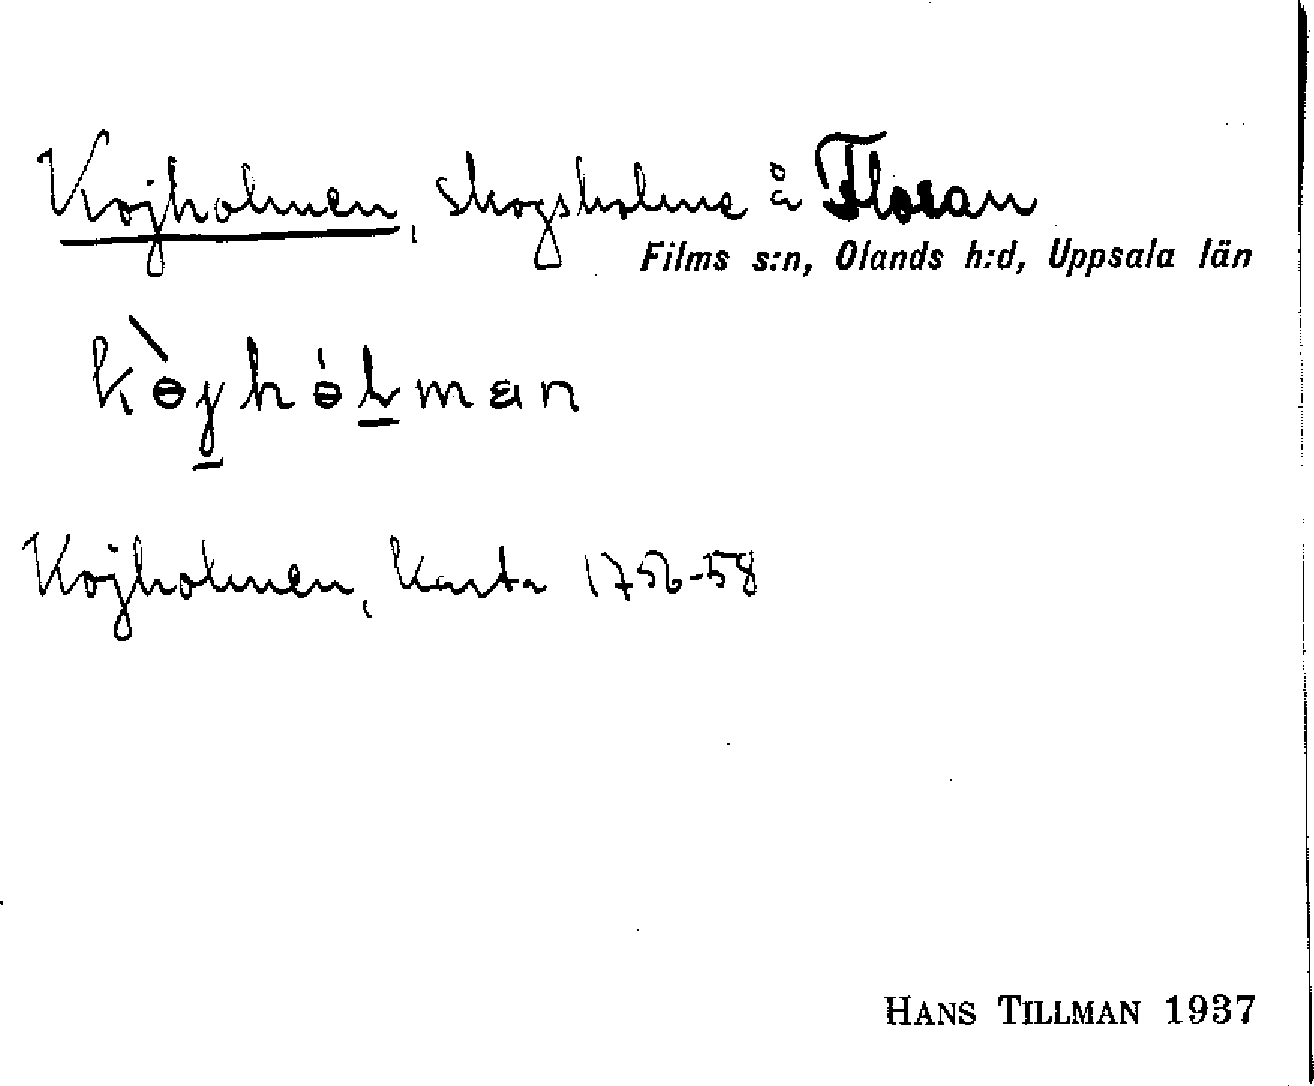 Kojholmen, skogsholme å Floran
Films s:n, Olands h:d, Uppsala län
kɵ̀jhɵ́lman
Kojholmen, Karta 1756-58
HANS TILLMAN 1937